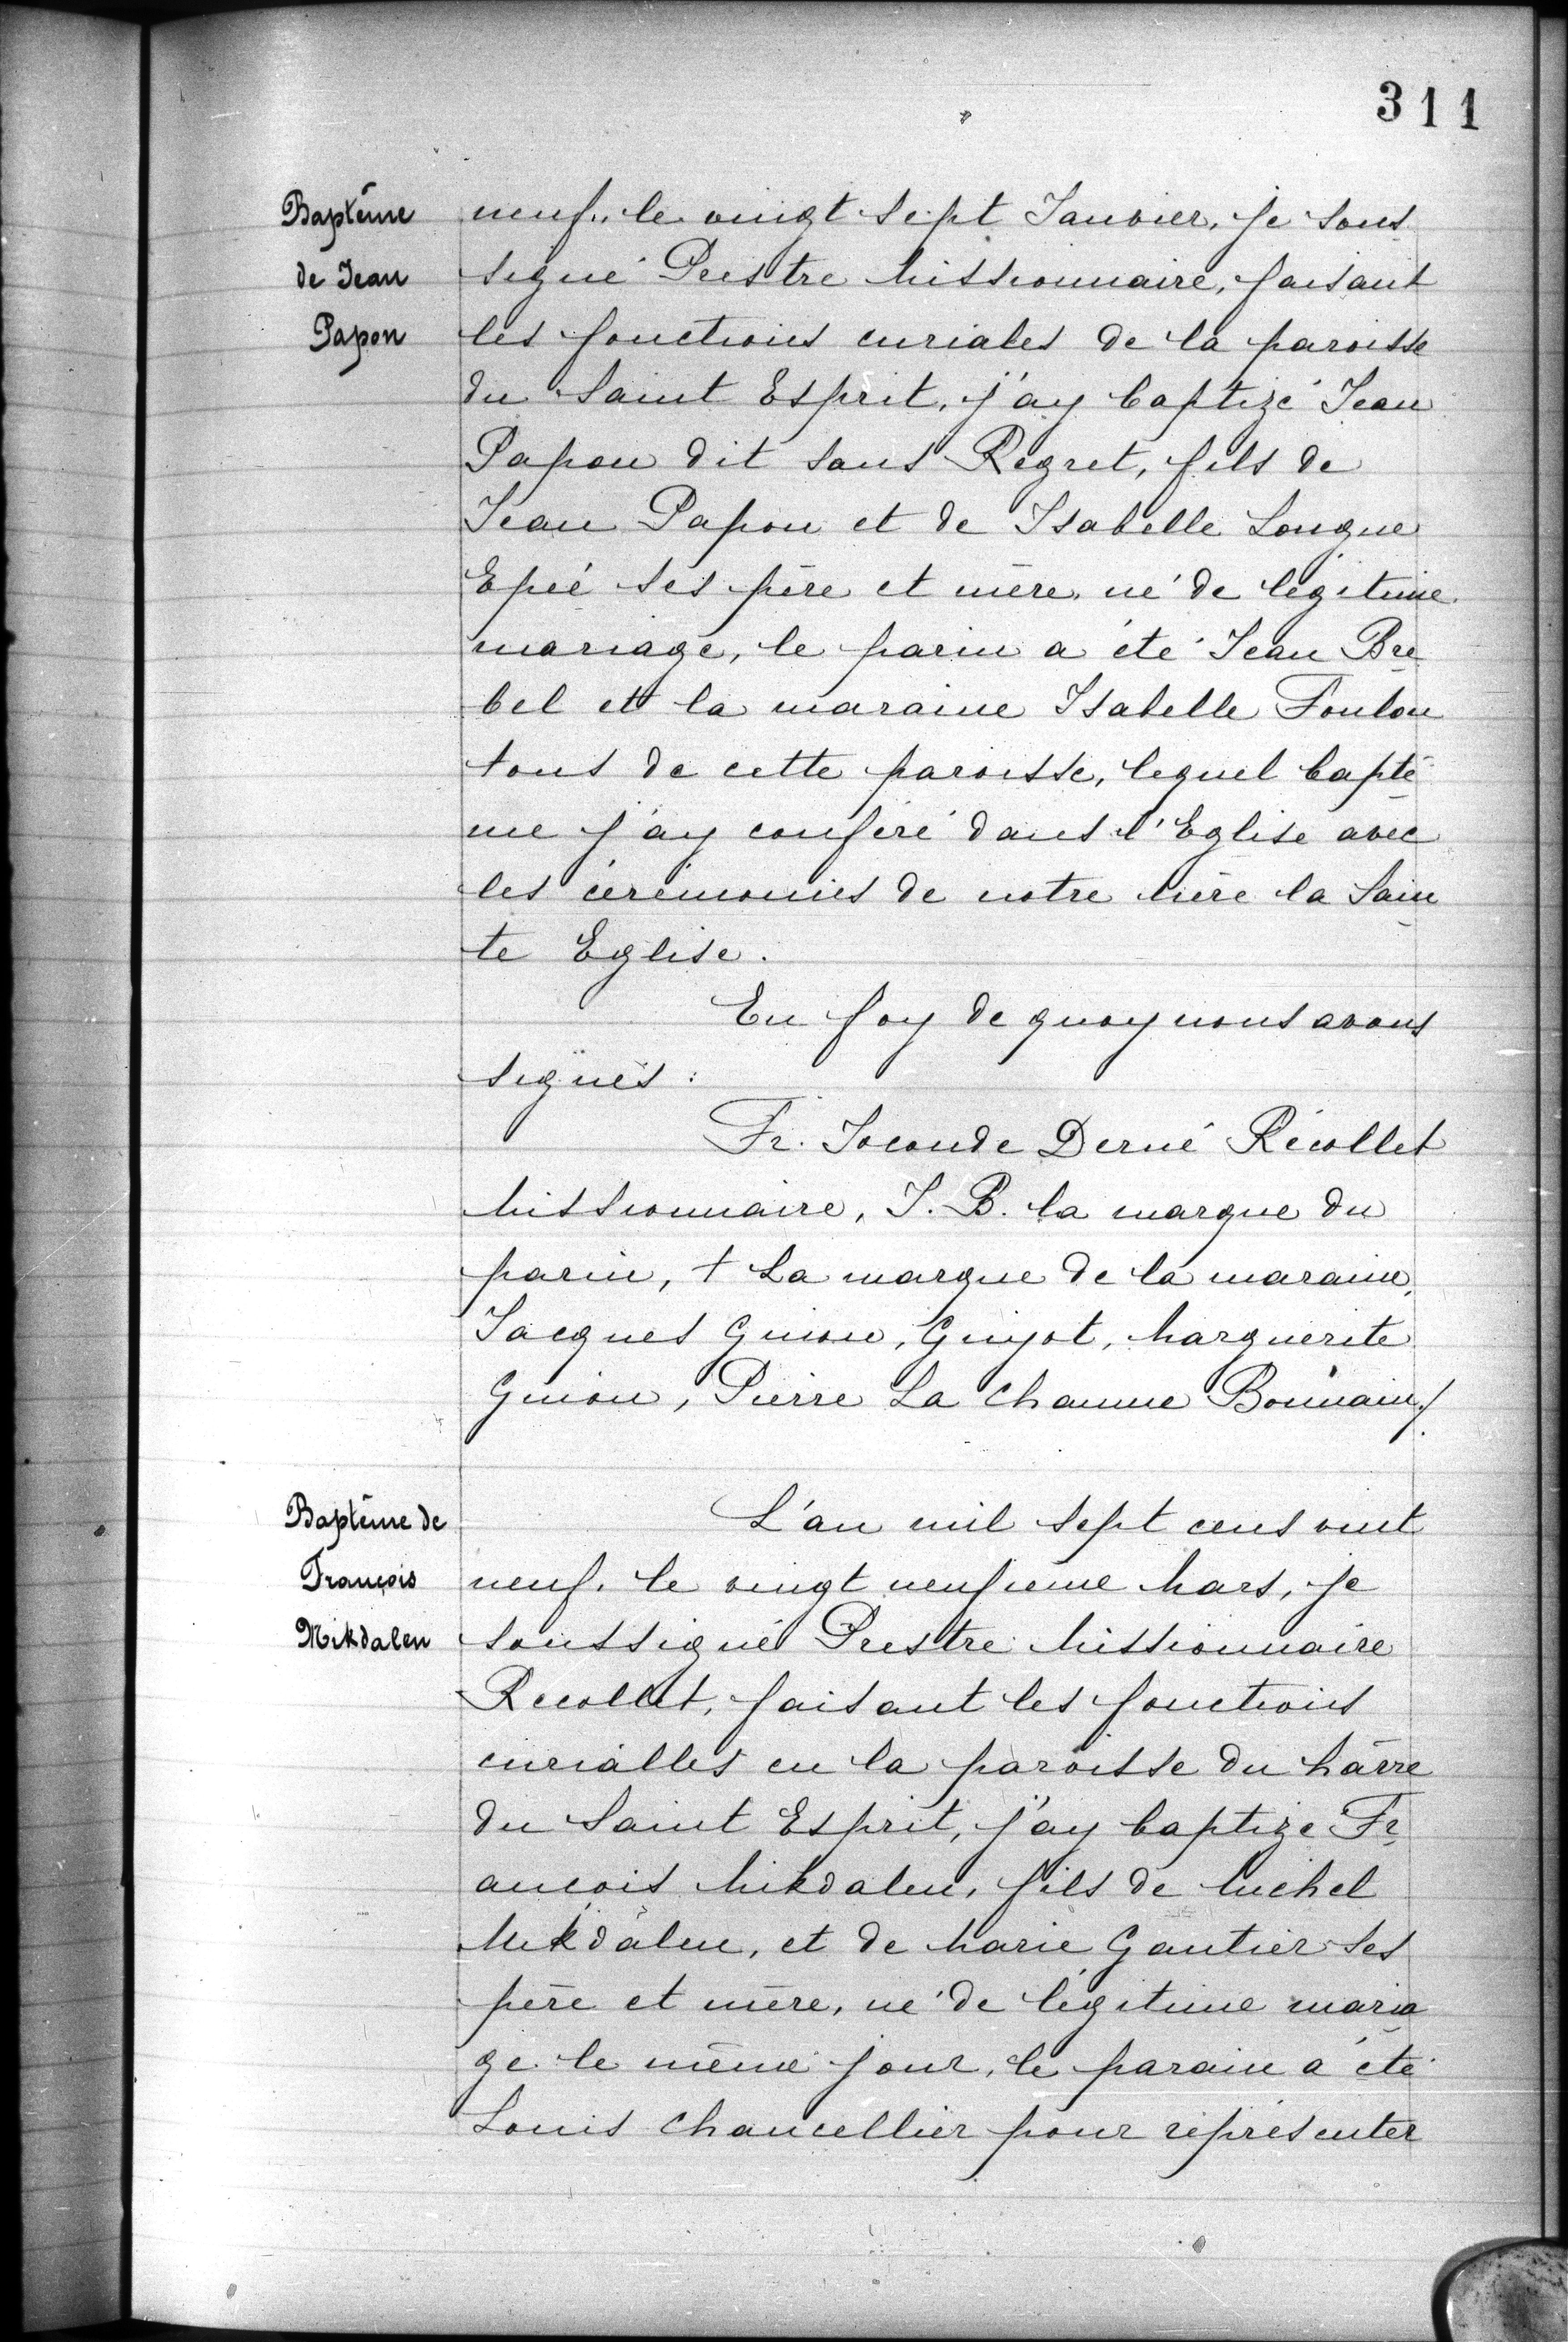 311
Baptême
de Jean
Papon
neuf. le vingt sept Janvier, je sous
signé Prestre Missionnaire, faisant
les fonctions curiales de la paroisse
du Saint Esprit, j'ay baptizé Jean
Papon dit sans Regret, fils de
Jean Papon et de Isabelle Longue
Epée ses père et mère, né de légitime
mariage, le parin a été Jean Bre
bel et la maraine Isabelle Foulon
tous de cette paroisse, lequel baptê
me j'ay conféré dans l'Eglise avec
les cérémonies de notre Mère la Sain
te Eglise.
En foy de quoy nous avons
signés:
Fr. Joconde Derné Récollet
Missionnaire, J. B. la marque du
parin, † La marque de la maraine,
Jacques Guion, Guyot, Marguerite
Guion, Pierre La Chaume Bonnain/.
Baptême de
François
Mikdalen
L'an mil sept cens vint
neuf, le vingt neufième Mars, je
soussigné Prestre Missionnaire
Recollet, faisant les fonctions
curialles en la paroisse du hâvre
du Saint Esprit, j'ay baptize Fr
ançois Mikdalen, fils de Michel
Mikdalen, et de Marie Gautier ses
père et mère, né de légitime maria
ge le même jour, le parain a été
Louis Chancellier pour représenter